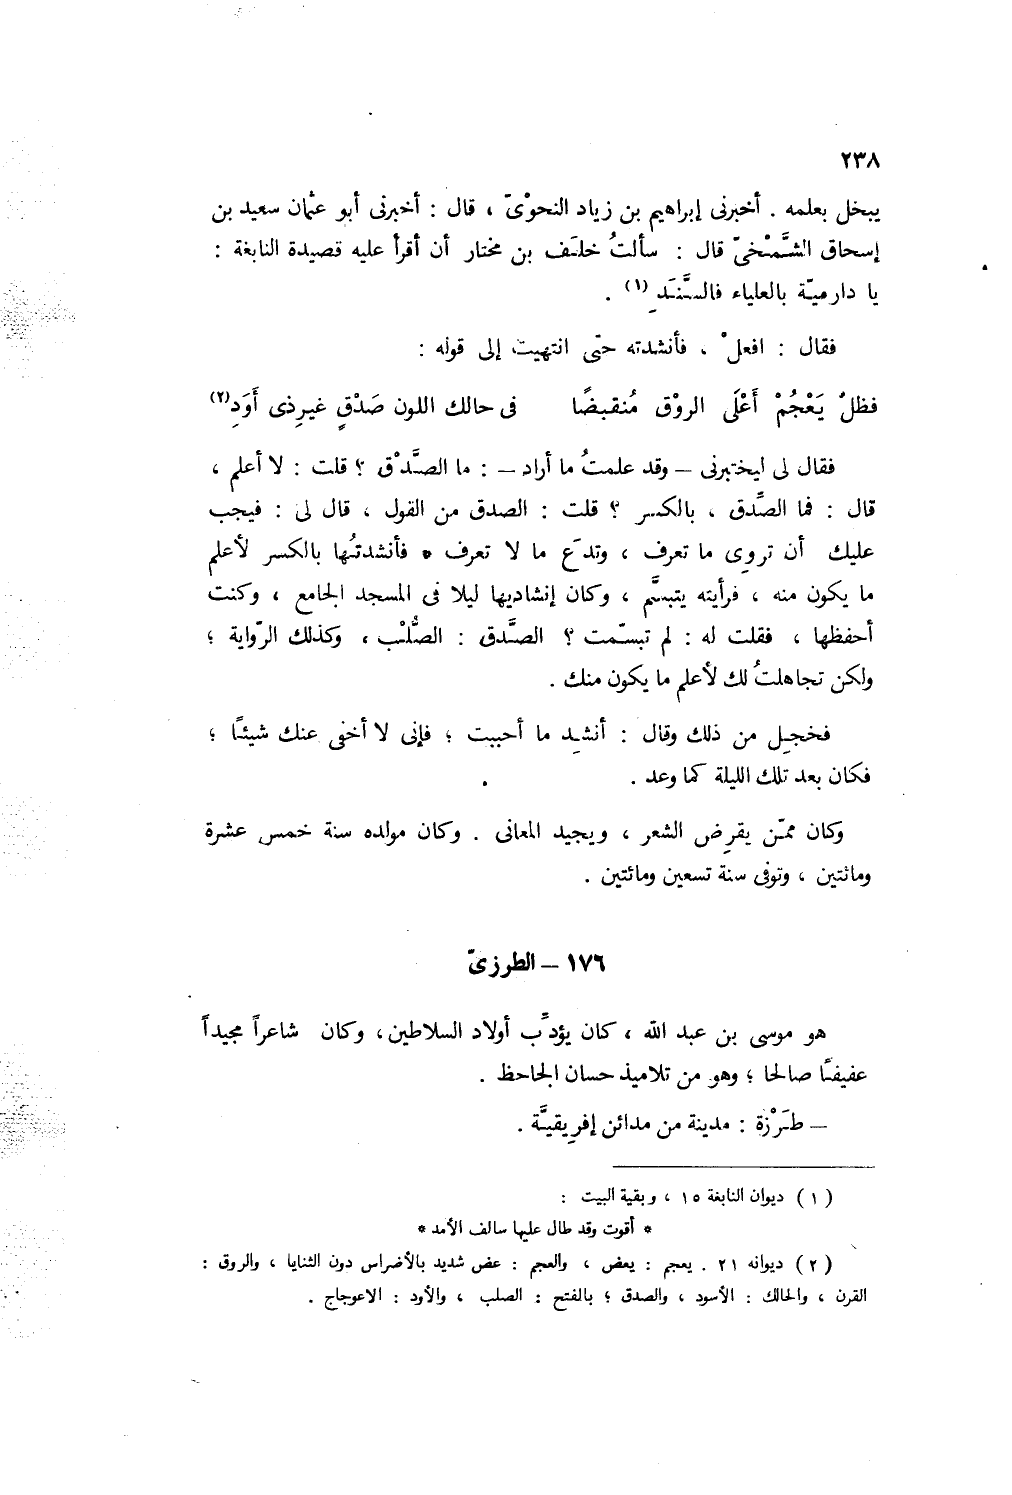 ٢٣٨
يبخل بعلمه . أخبرنى إبراهيم بن زياد النحوْىّ ، قال : أخبرنى أبو عثمان سعيد بن
إسحاق الشَّمْخىّ قال : سألتُ خلَف بن مختار أن أقرأ عليه قصيدة النابغة :
يا دارميّة بالعلياء فالسَّنَدِ (١) .
فقال : افعلْ ، فأنشدته حتّى انتهيت إلى قوله :
فظلْ يَعْجُمْ أَعْلَى الروْق مُنقبضًا فى حالك اللون صَدْقٍ غيرِذى أَوَدِ(٢)
فقال لى ليختبرنى – وقد علمتُ ما أراد – : ما الصَّدْق ؟ قلت : لا أعلم ،
قال : فما الصِّدق ، بالكسر ؟ قلت : الصدق من القول ، قال لى : فيجب
عليك أن تروِى ما تعرف ، وتدَع ما لا تعرف • فأنشدتُها بالكسر لأعلم
ما يكون منه ، فرأيته يتبسَّم ، وكان إنشاديها ليلا فى المسجد الجامع ، وكنت
أحفظها ، فقلت له : لم تبسّمت ؟ الصَّدق : الصُّلْب ، وكذلك الرّواية ؛
ولكن تجاهلتُ لك لأعلم ما يكون منك .
فخجِل من ذلك وقال : أنشِد ما أحببت ؛ فإنى لا أخفى عنك شيئًا ؛
فكان بعد تلك الليلة كما وعد .
وكان ممّن يقرِض الشعر ، ويجيد المعانى . وكان مولده سنة خمس عشرة
ومائتين ، وتوفى سنة تسعين ومائتين .
١٧٦ – الطرزىّ
هو موسى بن عبد الله ، كان يؤدِّب أولاد السلاطين، وكان شاعراً مجيداً
عفيفًا صالحا ؛ وهو من تلاميذ حسان الجاحظ .
– طَرْزة : مدينة من مدائن إفريقيَّة .
(١) ديوان النابغة ١٥ ، وبقية البيت :
* أقوت وقد طال عليها سالف الأمد *
(٢) ديوانه ٢١ . يعجم : يعض ، والعجم : عض شديد بالأضراس دون الثنايا ، والروق :
القرن ، والحالك : الأسود ، والصدق ؛ بالفتح : الصلب ، والأود : الاعوجاج .